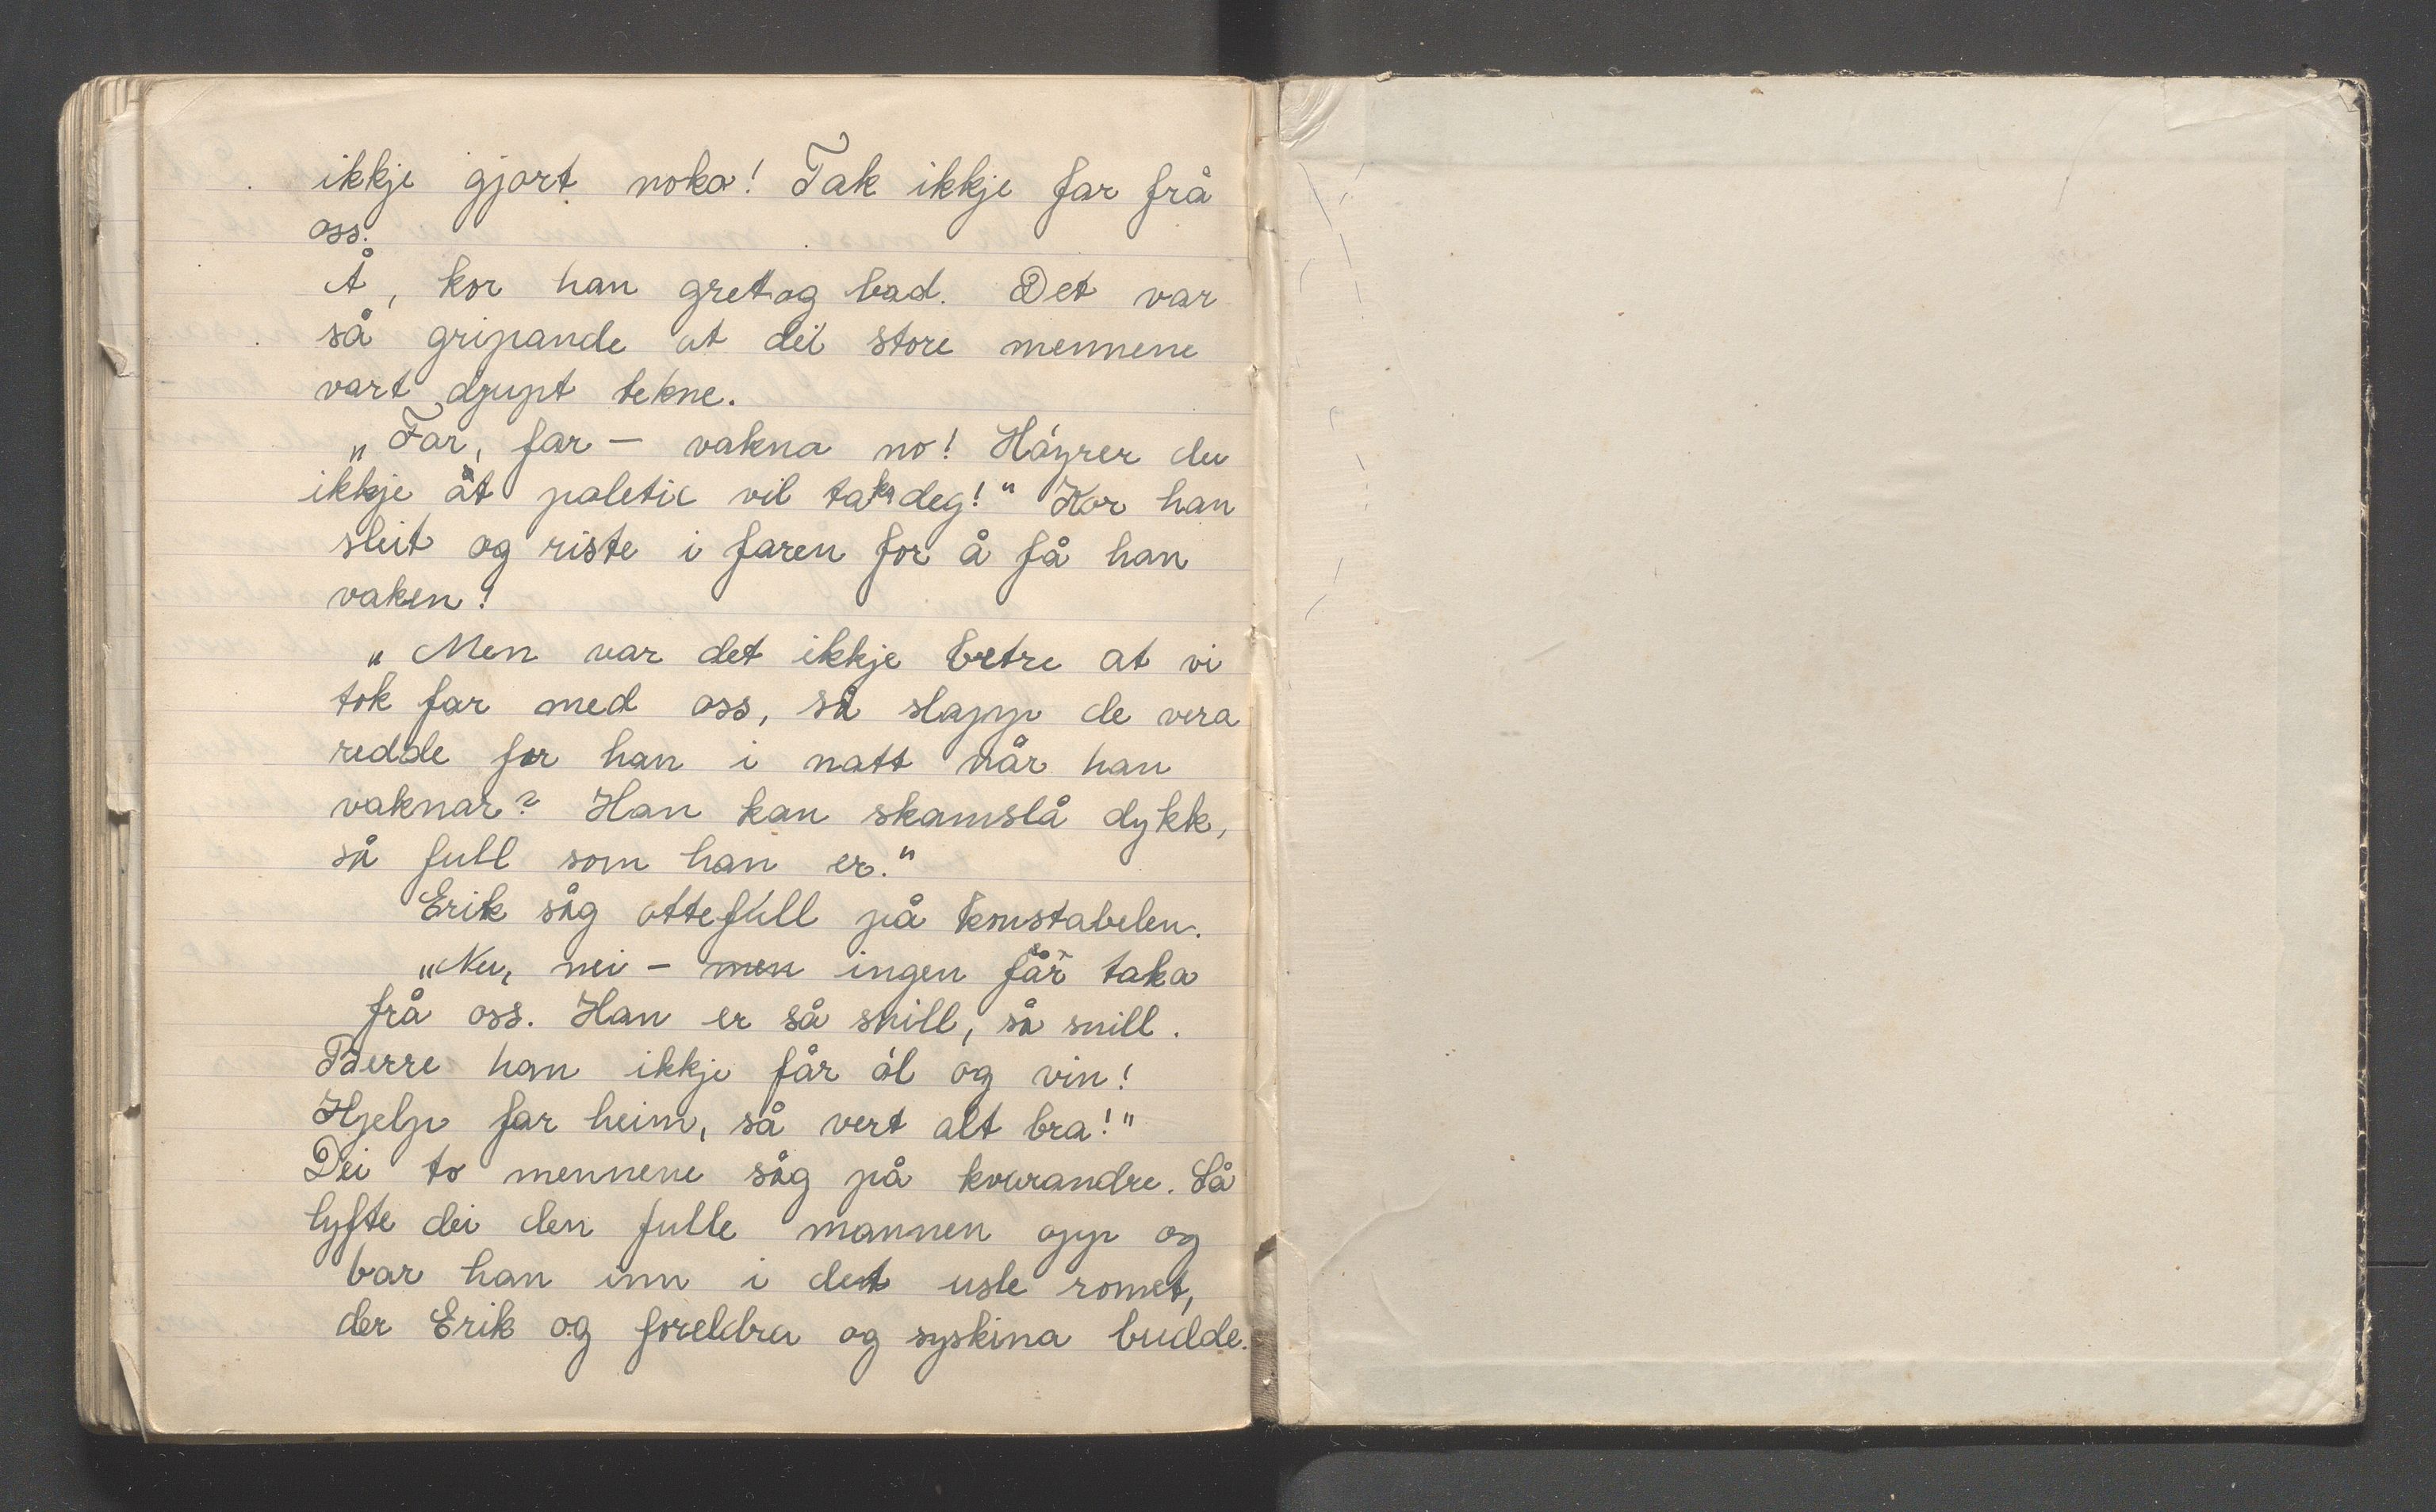 ikkje gjort noko! Tak ikkje far frå
oss.
Å, kor han gret og bad. Det var
så gripande at dei store mennene
vart djupt tekne.
„Far, far – vakna no! Høyrer du
ikkje at poletic vil taka deg!" Kor han
sleit og riste i faren for å få han
vaken!
„Men var det ikkje betre at vi
tok far med oss, så slapp de vera
redde for han i natt når han
vaknar? Han kan skamslå dykk,
så full som han er."
Erik såg ottefull på konstabelen.
„Nei, nei – men ingen får taka
frå oss. Han er så snill, så snill.
Berre han ikkje får øl og vin!
Hjelp far heim, så vert alt bra!"
Dei to mennene såg på kvarandre. Så
lyfte dei den fulle mannen opp og
bar han inn i det usle romet,
der Erik og foreldra og syskina budde.